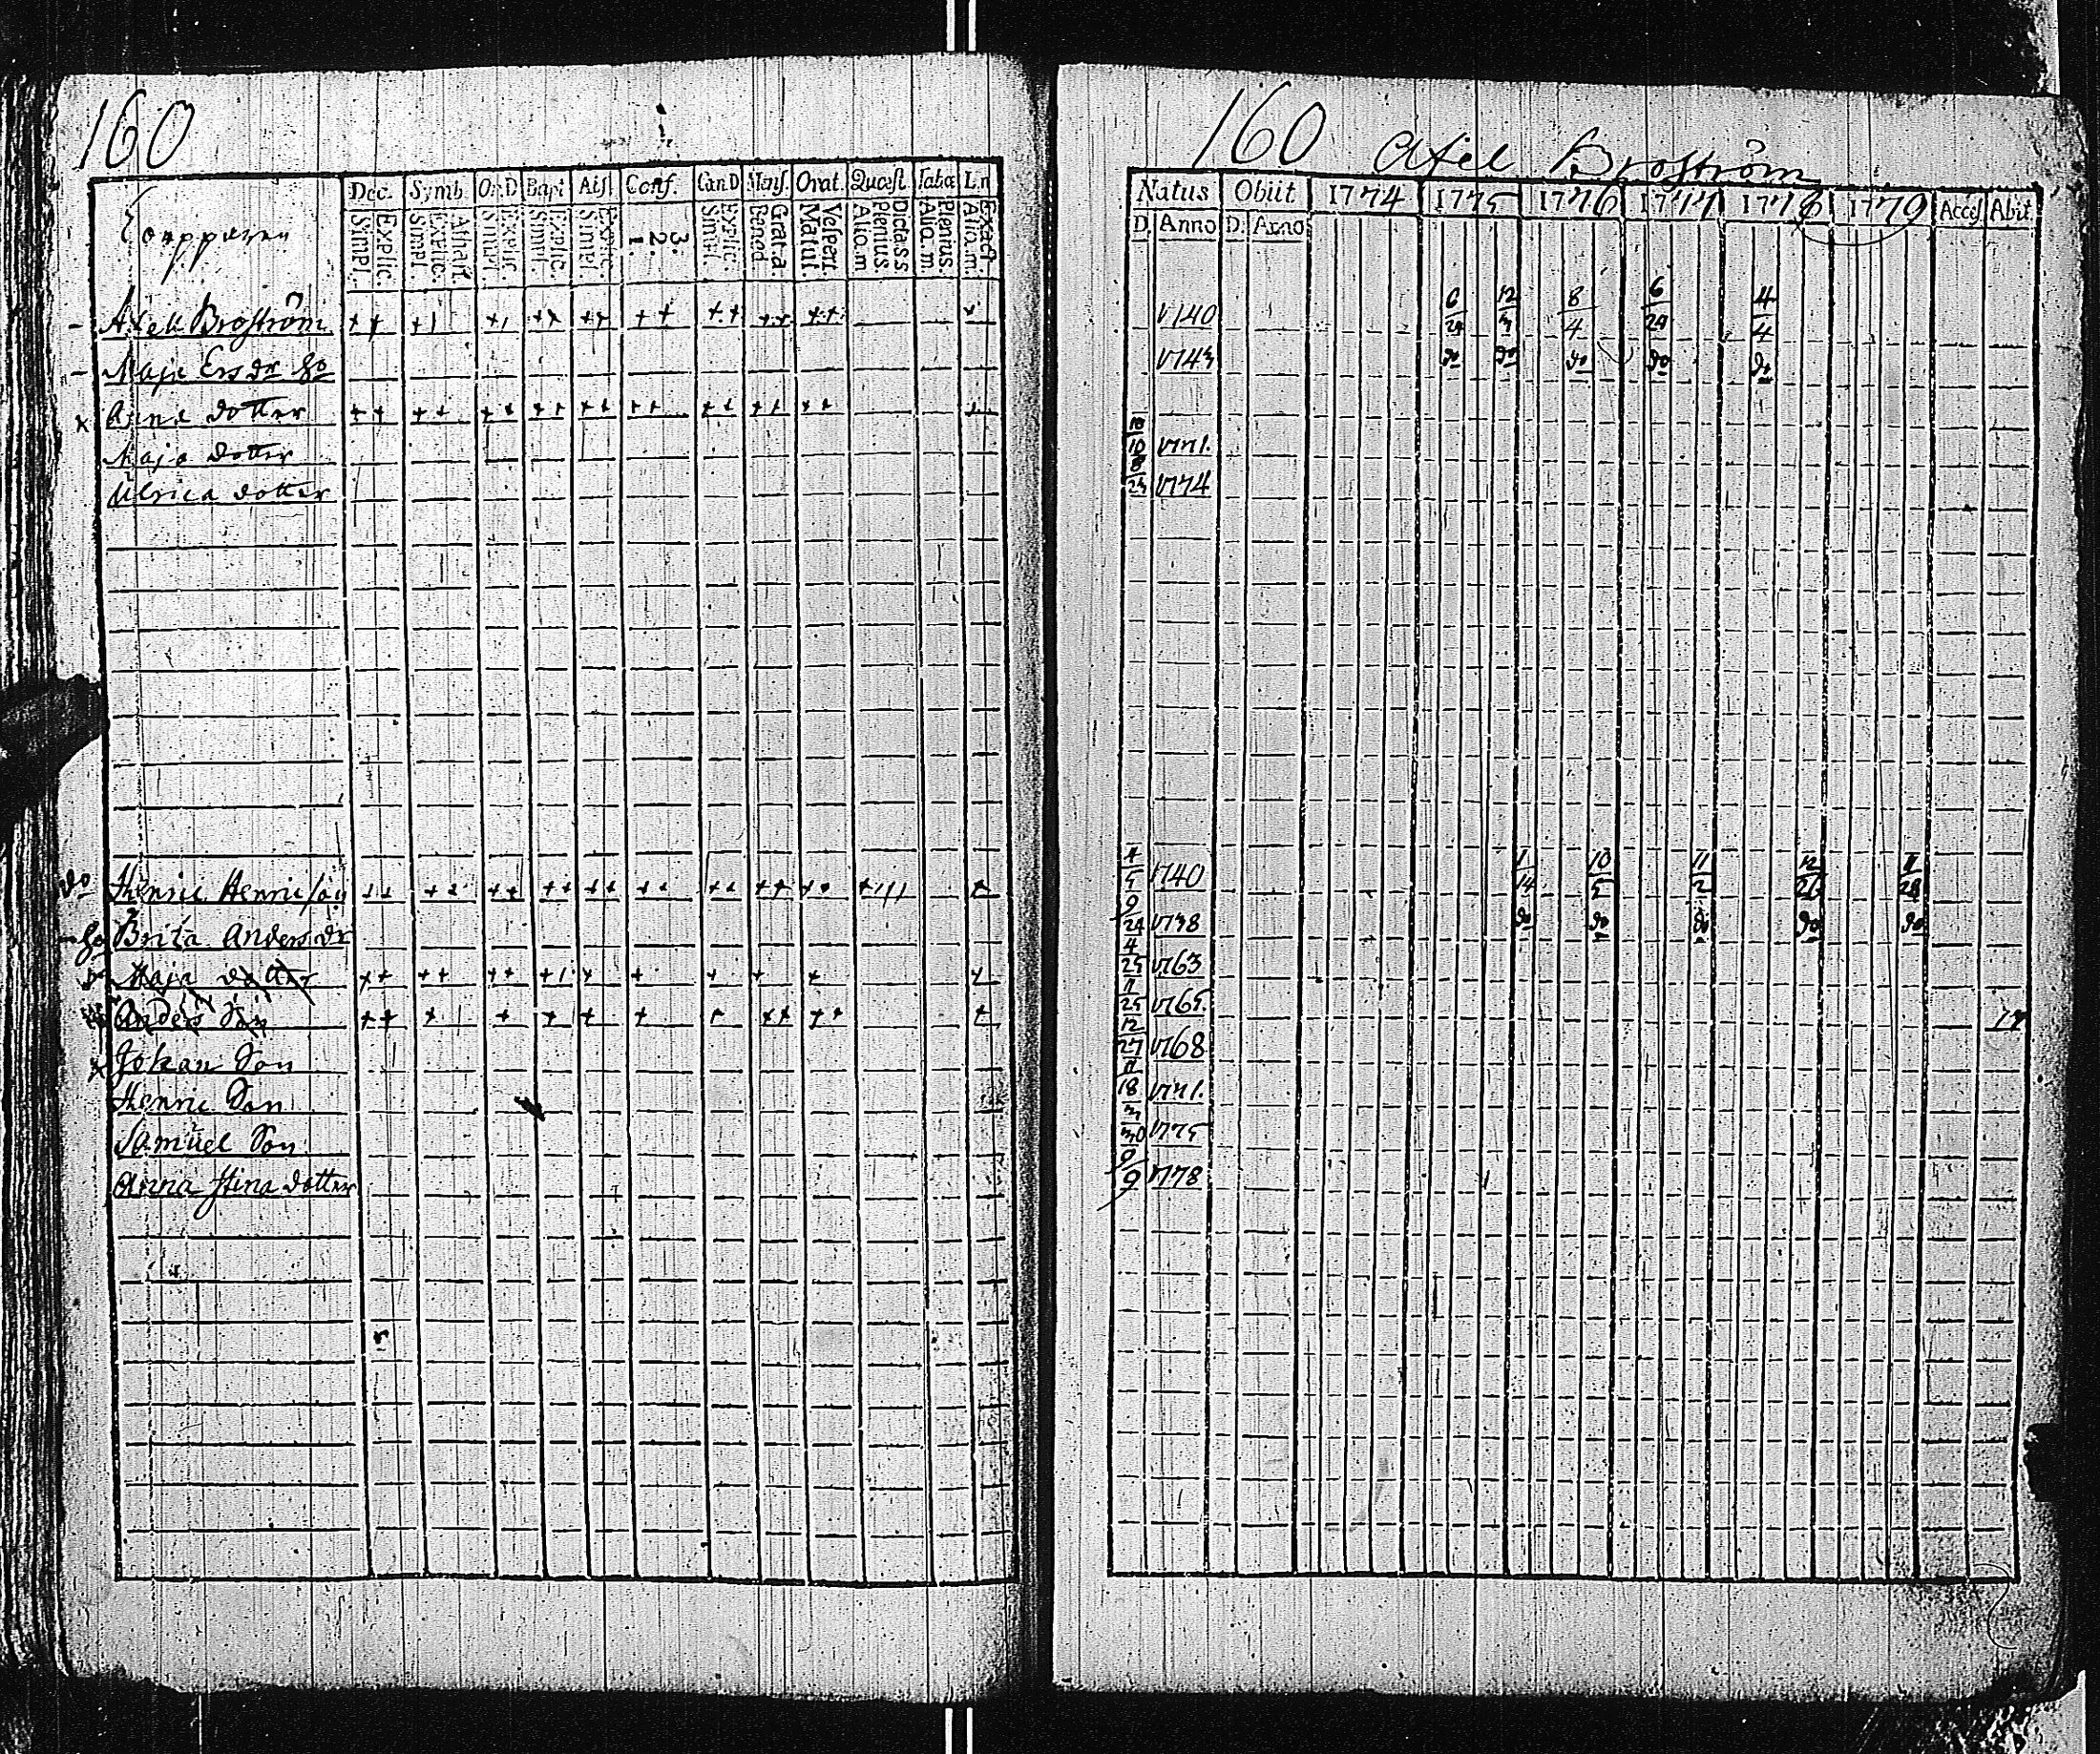 160
Dec. Symb. Or.D Bapt Abs. Conf. Cœn.D Mens. Orat. Quæst. Tabæ L.n
Torpparen
Simpl. Explic. Simpl. Explic. Athan. Simpl. Explic. Simpl. Explic. Simpl. Explic. 1. 2. 3. Simpl. Explic. Bened. Grat. a. Matut. Vespert. Alio. m Plenius. Dictass Alia. m Plenius. Alia. m. Exact
- Axell Broström ++ +1 +1 ++ ++ ++ ++ ++ ++ +
- Maja Ers dr ho
x Anna dotter ++ ++ ++ ++ ++ ++ ++ ++ ++ +
Maja dotter
Ulrica dotter
do Henric Henricsson ++ ++ ++ ++ ++ ++ ++ ++ ++ +
- ho Brita Anders dr
Maja dotter ++ ++ ++ +1 + + + + + +
Anders Son ++ + + + + + + ++ ++ +
x Johan Son
Henric Son
Samuel Son
Anna Stina dotter
160 Axel Broström
Natus Obiit 1774 1775 1776 1777 1778 1779 Acces. Abit.
D. Anno D. Anno
1740 6/24 12/3 8/4 6/29 4/4
1743 do do do do do
10/10 1771.
8/23 1774
4/5 1740 1/14 10/5 11/2 12/26 11/28
9/24 1738 do do do do do
4/25 1763
11/25 1765.
12/27 1768
11/18 1771.
3/30 1775
9/9 1778